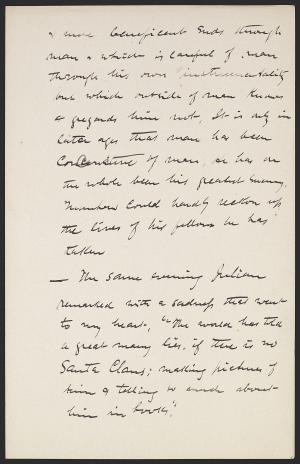 a more beneficent ends through
man & which is careful of man
through his own instrumentality
but which outside of man knows
& regards him not. It is only in
later ages that man has been
of man, or has on
the whole been his greatest enemy.
could hardly reckon up
the lives of his fellows he has
taken
— The same evening Julian
remarked with a sadness that went
to my heart, "The world has told
a great many lies, if there is no
Santa Claus; making pictures of
him & telling so much about
him in books".